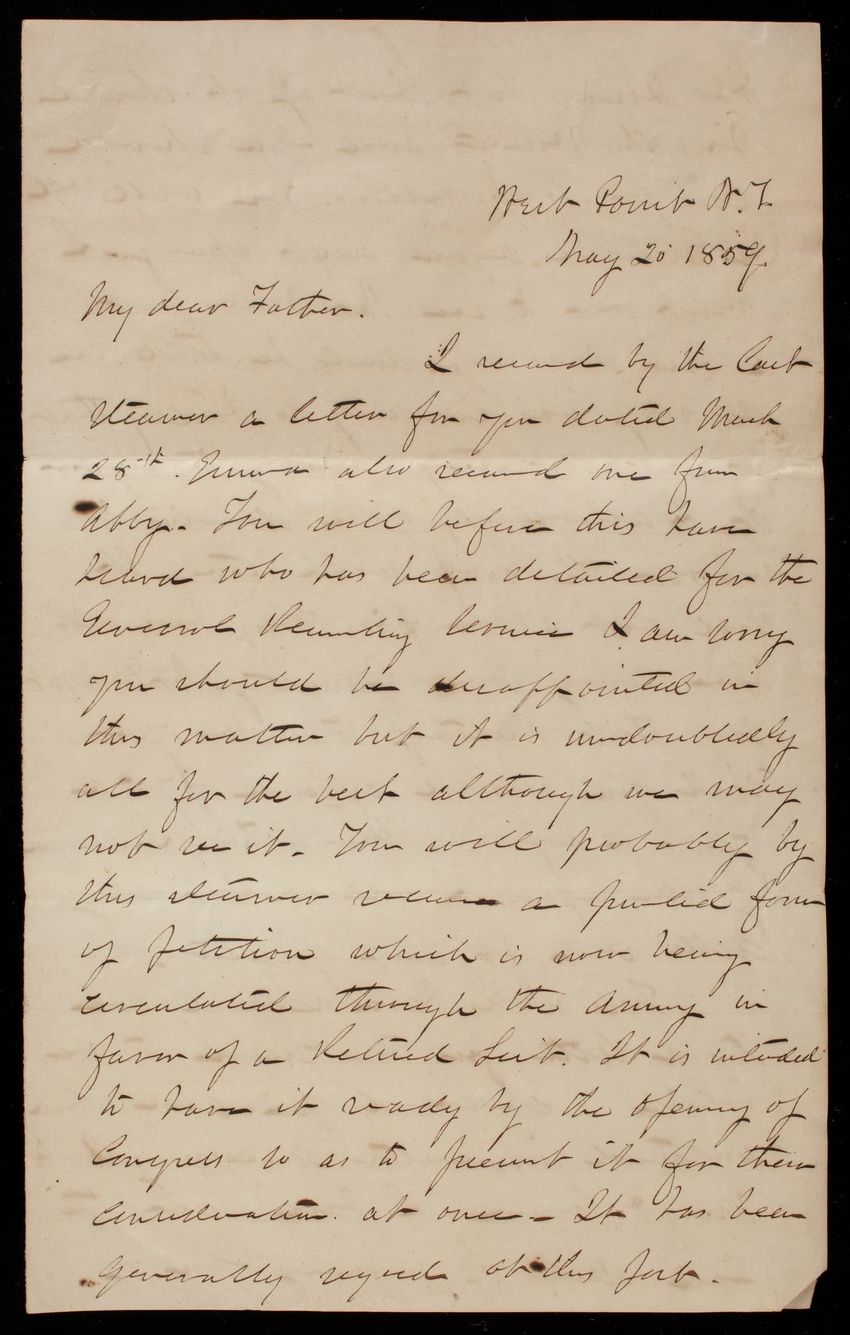 West Point N.Y.
May 20 1859.
My dear Father.
I received by the last
steamer a letter from you dated March
28th. Emma also received one from
Abby. You will before this have
heard who has been detailed for the
General Recruiting Service I am sorry
you should be disappointed in
this matter but it is undoubtedly
all for the best although we may
not see it. You will probably by
this steamer receive a printed form
of petition which is now being
circulated through the Army in
favor of a Retired List. It is intended
to have it ready by the opening of
Congress so as to present it for their
consideration at once - It has been
generally signed at this post.